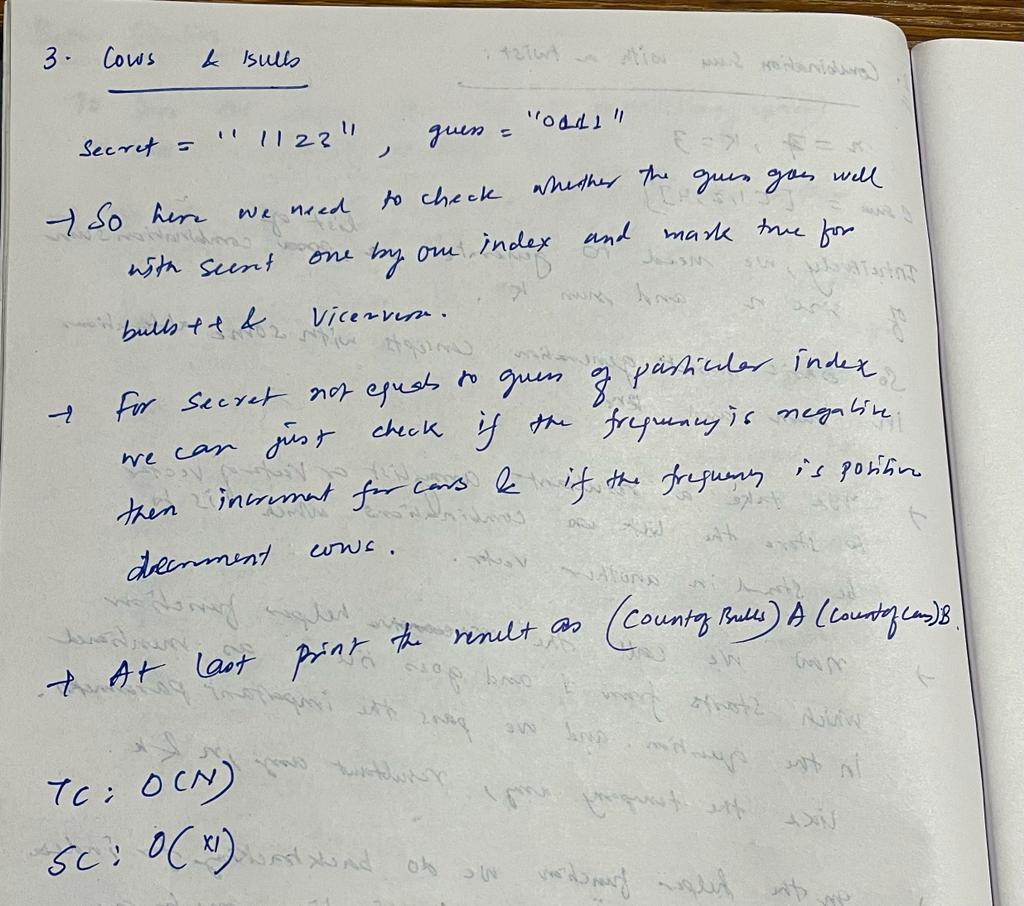 3. Cows & Bulls
Secret = "1123", guess = "0111"
→ So here we need to check whether the guess goes well
with secret one by one index and mark true for
bulls ++ & Viceversa.
→ For Secret not equals to guess of particular index
we can just check if the frequency is negative
then increment for cows & if the frequency is positive
decrement cows.
→ At last print the result as (Count of Bulls) A (Count of Cows) B.
TC: O(N)
SC: O(1)